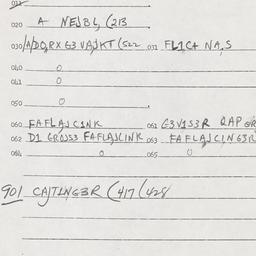 021
020 A NEJBL, (213
030 /A/DO,RX G3 VAJKT (522 031 FL1C+ NA,S
040 0
041 0
050 0
060 FAFLAJC1NK 061 G3V1S3R QAP GR
062 D1 GROSS3 FAFLAJCINK 063 FAFLAJCING3R
064 0 065 0
901 CAJTLNG3R (417 (428